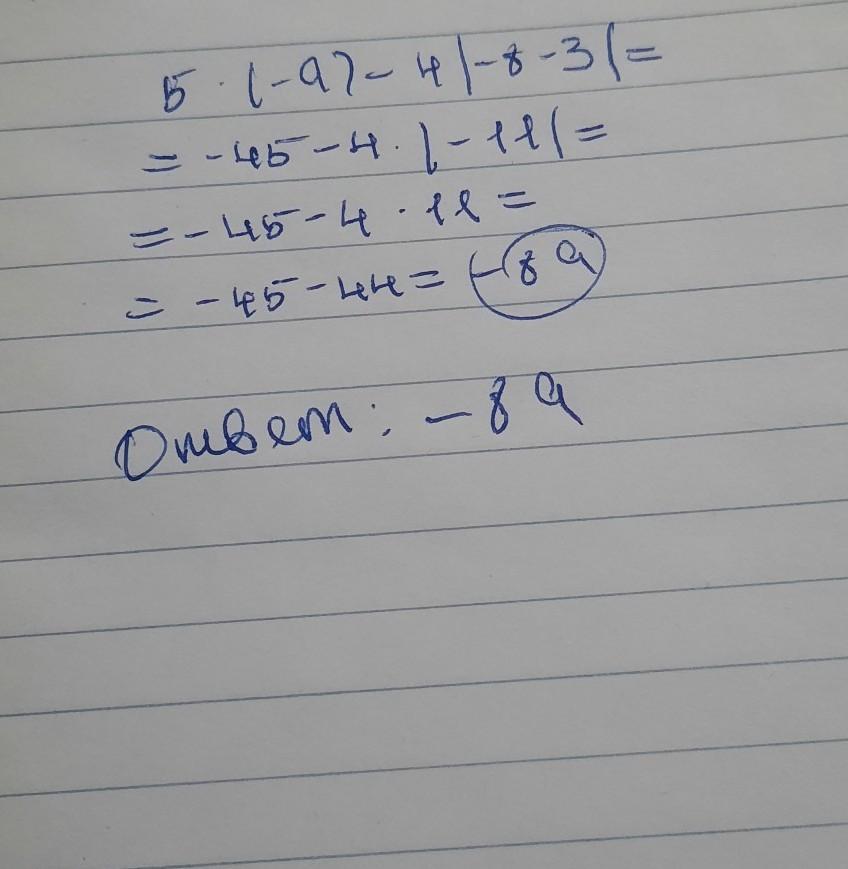 5 · (-9) - 4 |-8 - 3| =
= -45 - 4 · |-11| =
= -45 - 4 · 11 =
= -45 - 44 = -89
Ответ: -89